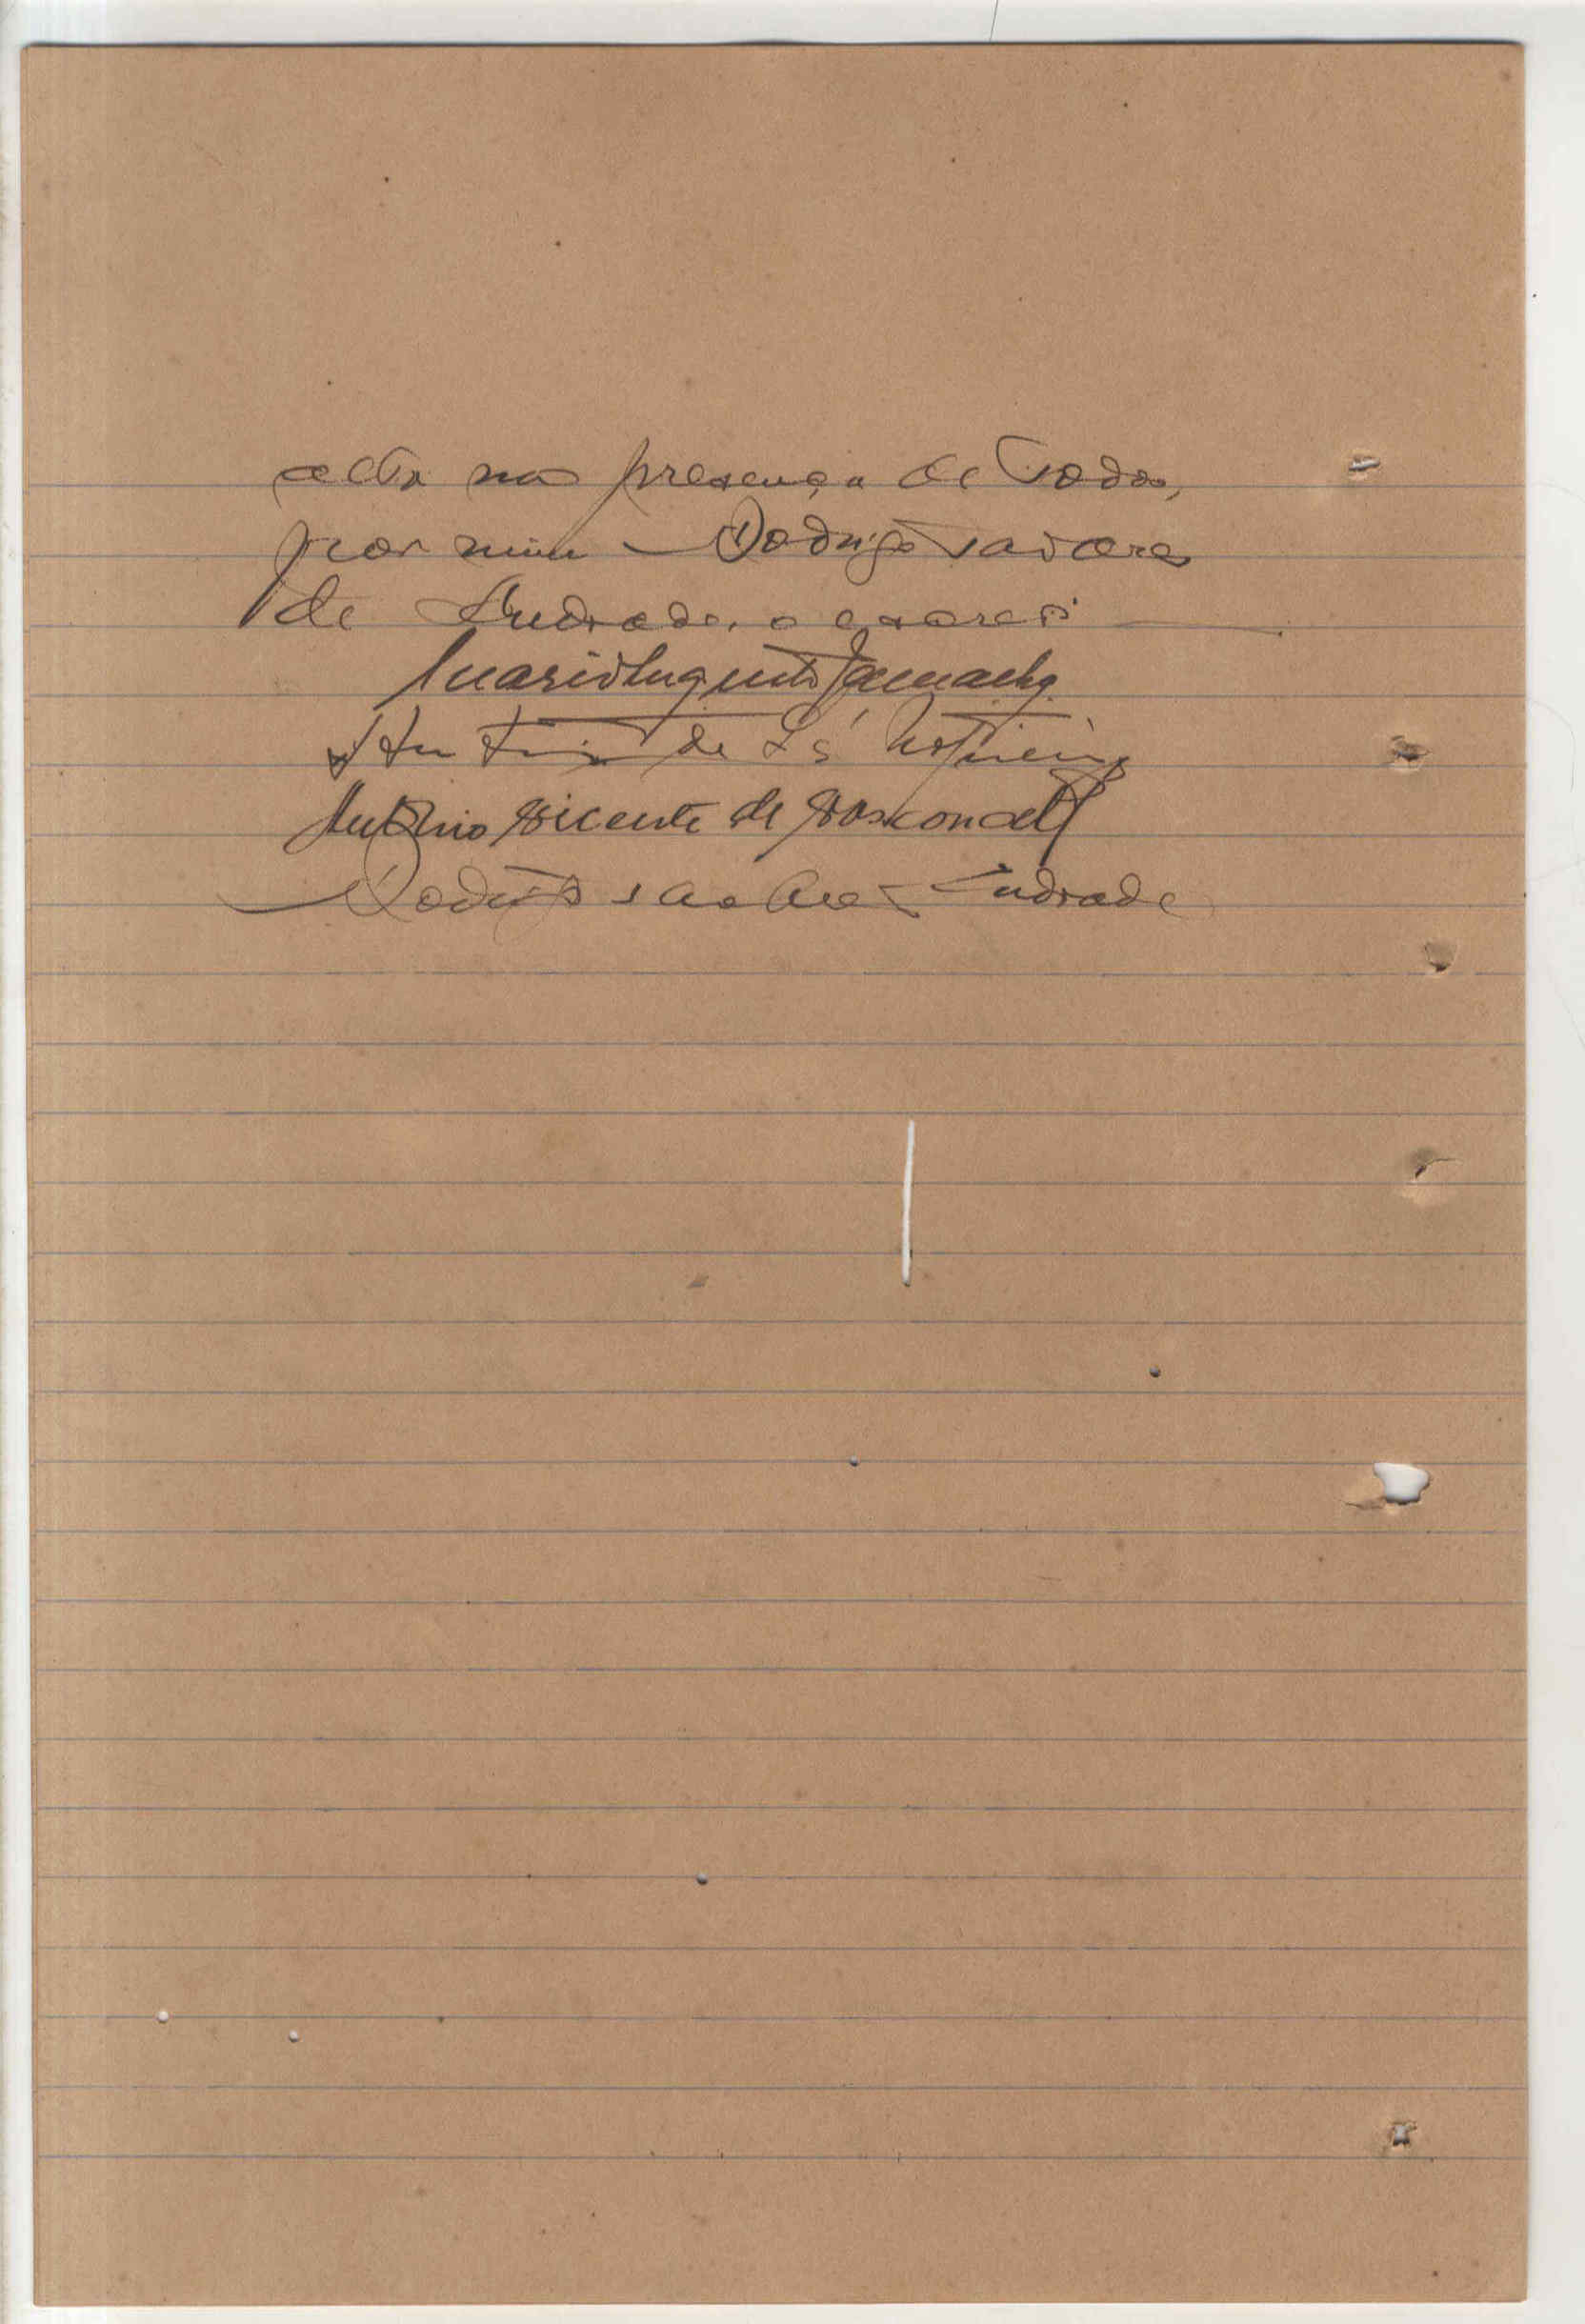 acta na presença de todos,
por mim Rodrigo Tavares
de Andrade, o escrevi
Mario Augusto
Antonio de Sá Nogueira
Antonio Vicente de Vasconcellos
Rodrigo Tavares Andrade